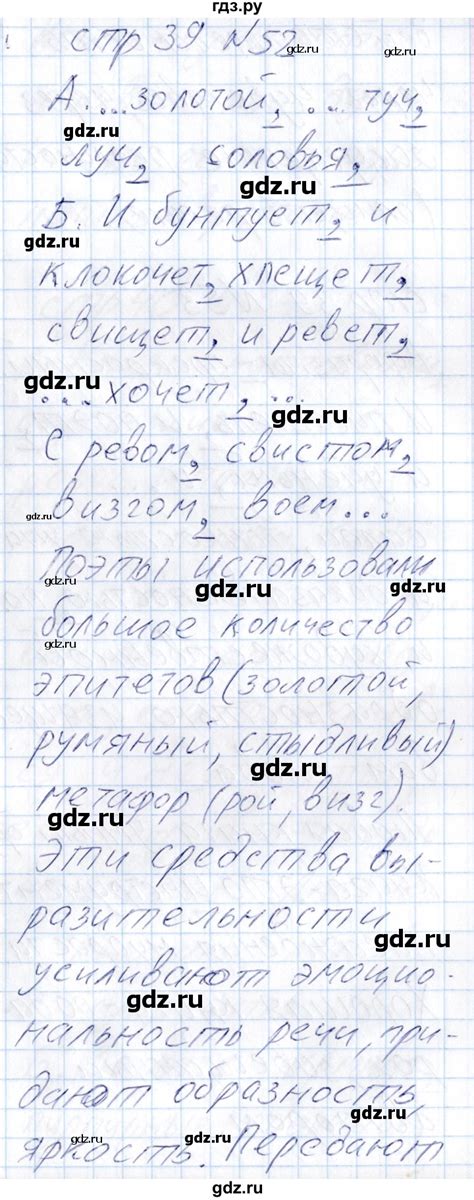 гдз.ру
стр 39 N 52
А. ...золотой, ... туч,
луч, соловья,
Б. И бунтует, и
клокочет, хлещет,
свищет, и ревет,
...хочет, ...
С ревом, свистом,
визгом, воем...
Поэты использовали
большое количество
эпитетов (золотой,
румяный, стыдливый)
метафор (рой, визг).
Эти средства вы-
разительности
усиливают эмоцио-
нальность речи, при-
дают образность,
яркость. Передают
gdz.ru